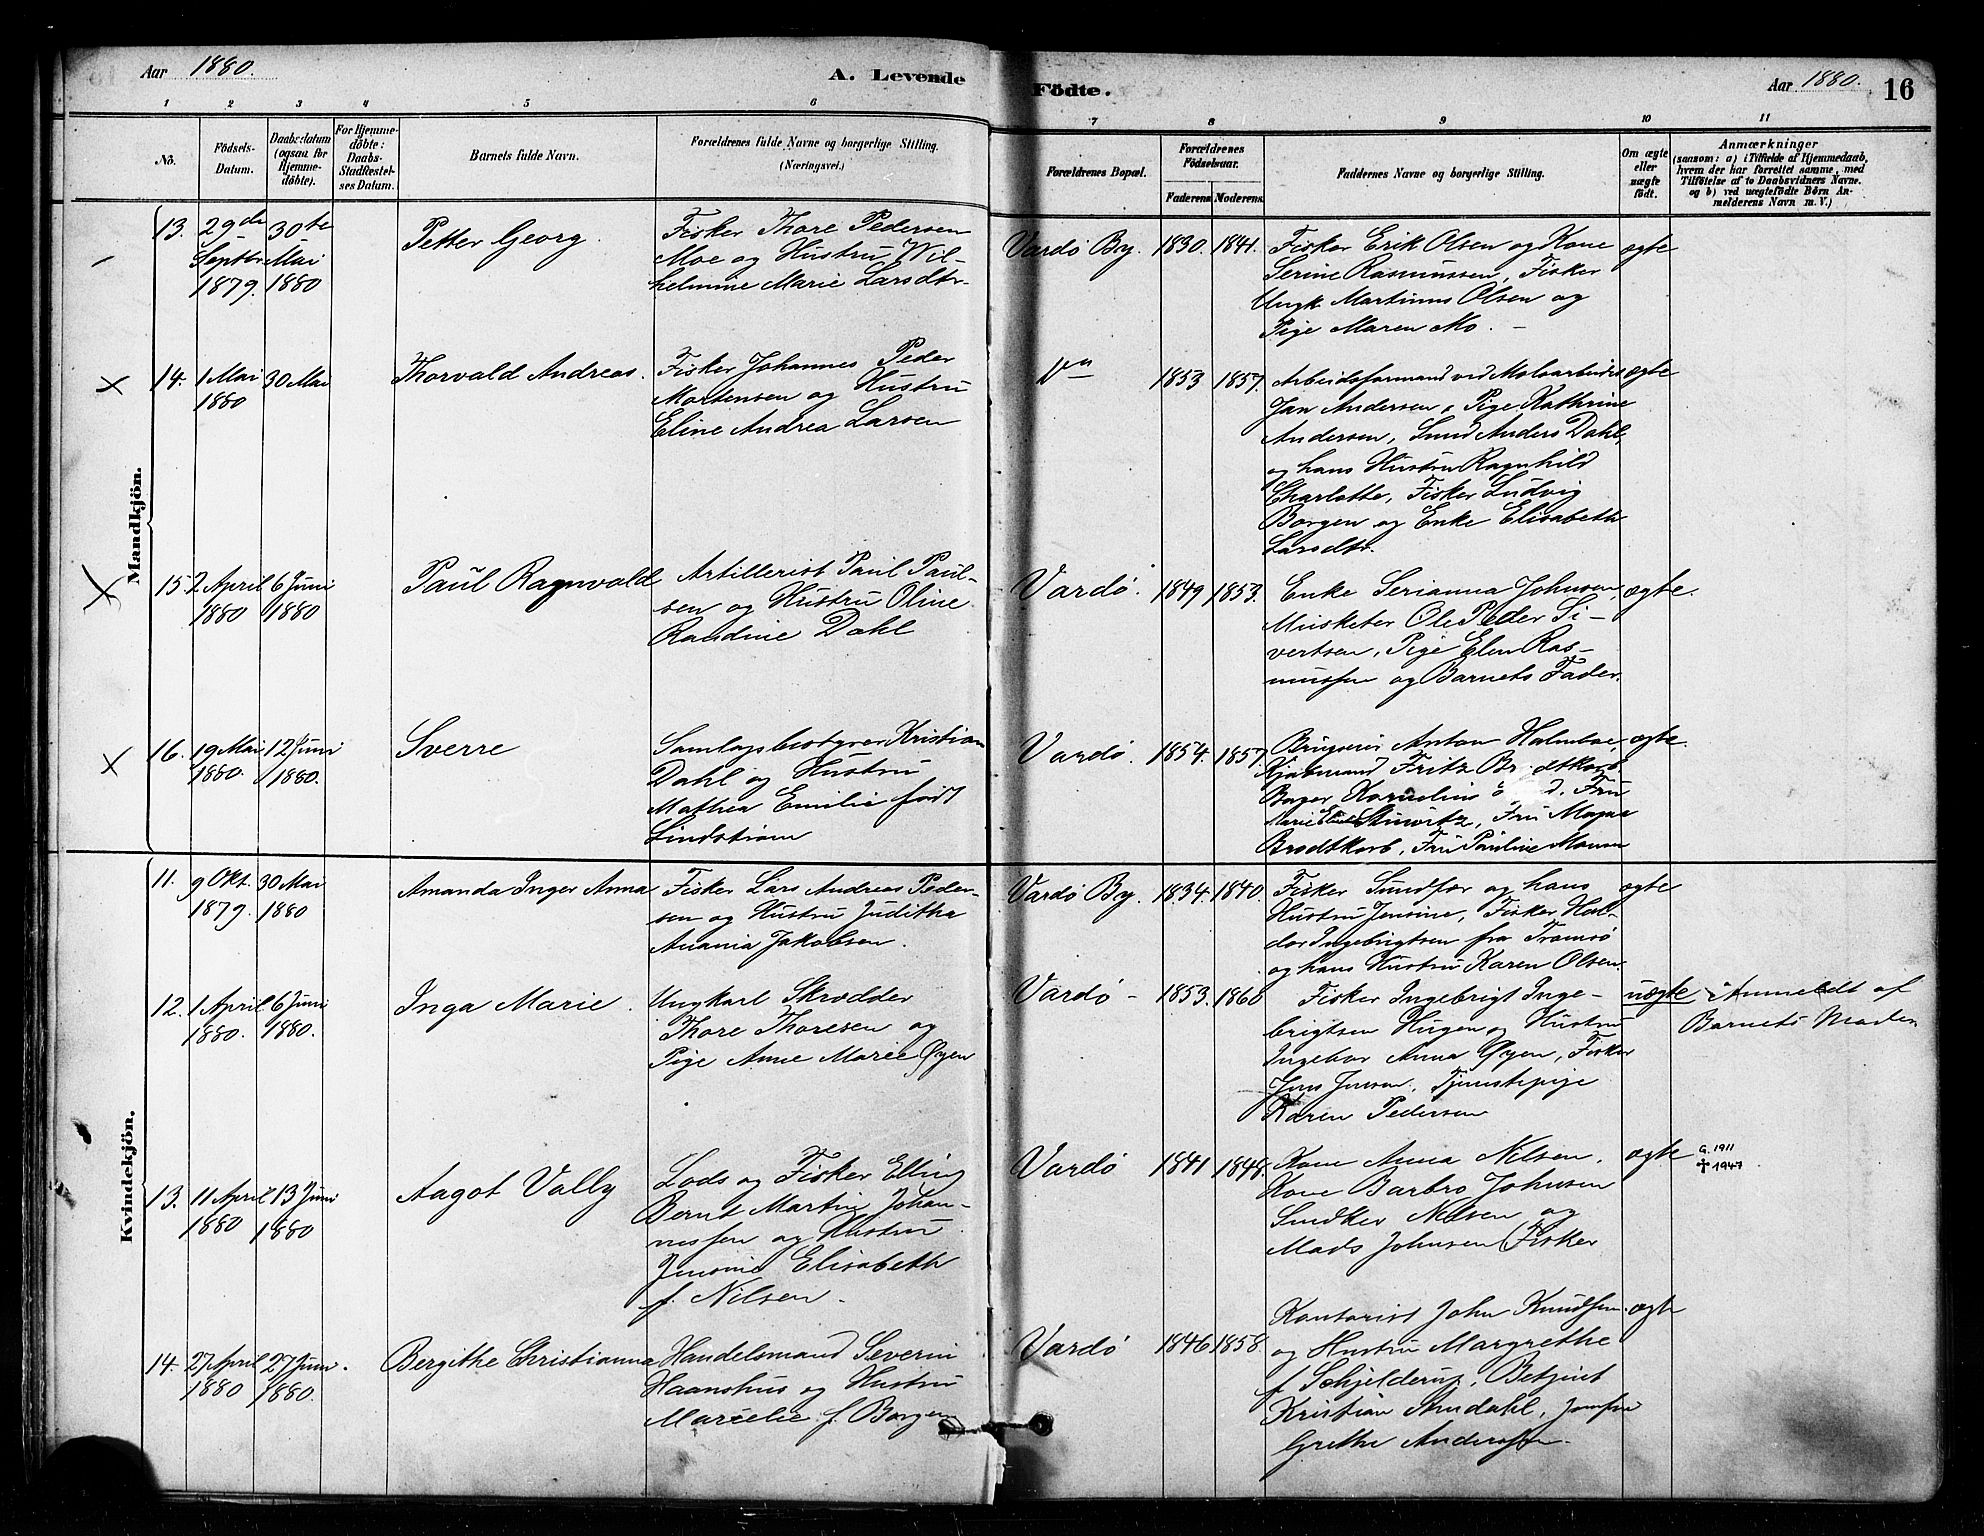 Aar 1880.
A. Levende
Födte.
Aar 1880.
16
1 2 3 4 5 6 7 8 9 10 11
No.
Födsels-
Datum.
Daabsdatum
(ogsaa for
Hjemme-
döbte).
For Hjemme-
döbte:
Daabs-
Stadfæstel-
ses Datum.
Barnets fulde Navn.
Forældrenes fulde Navne og borgerlige Stilling.
(Næringsvei.)
Forældrenes Bopæl.
Forældrenes
Födselsaar.
Faderens
Moderens.
Faddernes Navne og borgerlige Stilling.
Om ægte
eller
uægte
födt.
Anmærkninger
(saasom: a) i Tilfælde af Hjemmedaab,
hvem der har forrettet samme, med
Tilföielse af to Daabsvidners Navne.
og b) ved uægtefödte Börn An-
melderens Navn m. V.)
Mandkjön.
13.
29de
Septbr
1879.
30te
Mai
1880
Petter Georg.
Fisker Thore Pedersen
Moe og Hustru Wil-
helmine Marie Larsdtr.
Vardö By.
1830.
1841.
Fisker Erik Olsen og Kone
Serine Rasmussen, Fisker
Ungk. Martinus Olsen og
Pige Maren Mo. –
ægte
14.
1 Mai
1880
30 Mai
Thorvald Andreas.
Fisker Johannes Peder
Mortensen og Hustru
Eline Andrea Larsen
1853
1857.
Arbeidsformand ved Moloarbeidet
Jan Andersen, Pige Kathrine
Andersen, Smed Anders Dahl,
og hans Hustru Ragnhild
Charlotte, Fisker Ludvig
Borgen og Enke Elisabeth
Larsdtr.
ægte
15.
2 April
1880
6 Juni
1880
Paul Ragnvald
Artillerist Paul Paul-
sen og Hustru Oline
Randine Dahl
Vardö.
1849
1853.
Enke Serianna Johnsen,
Musketer Ole Peder Si-
vertsen, Pige Elen Ras-
mussen og Barnets Fader.
ægte.
16.
19 Mai
1880.
12 Juni
1880.
Sverre
Samlagsbestyrer Kristian
Dahl og Hustru
Mathea Emilie født
Lindstrøm
Vardö.
1854.
1857.
Anton Holmboe,
Kjøbmand Fritz
Bager Kornelius
Fru
Marie
Fru Magna
Brodtkorb, Fru Pauline
ægte.
Kvindekjön.
11.
9 Okt.
1879.
30 Mai
1880
Amanda Inger Anna
Fisker Lars Andreas Peder-
sen og Hustru Juditha
Anania Jakobsen.
Vardö By.
1834.
1840.
Fisker Sundfær og hans
Hustru Jensine, Fisker Hal-
dor Ingebrigtsen fra Tromsö
og hans Hustru Karen Olsen.
ægte
12.
1 April
1880.
6 Juni
1880.
Inga Marie.
Ungkarl Skrædder
Thore Thoresen og
Pige Anne Marie Øyen
Vardö –
1853.
1860
Fisker Ingebrigt Inge-
brigtsen Hugen og Hustru
Ingebor Anna Øyen, Fisker
Jens Jensen, Tjenestepige
Karen Pedersen
uægte
Anmeldt af
Barnets Moder
13.
11 April
1880
13 Juni
1880
Aagot Vally
Lods og Fisker Elling
Bernt Martin Johan-
nessen og Hustru
Jensine Elisabeth
f. Nilsen –
Vardö
1841
1848.
Kone Anna Nilsen,
Kone Barbro Johnsen
Nilsen og
Mads Johnsen (Fisker
ægte
G. 1911
✝ 1947
14.
27 April
1880
27 Juni.
1880.
Bergithe Christianna
Handelsmand Severin
Haanshus og Hustru
Marcelie f. Borgen
Vardö
1846
1858.
Kontorist John Knudsen.
og Hustru Margrethe
f. Schjelderup, Betjent
Kristian Anudahl, Jomfru
Grethe Anderssen.
ægte